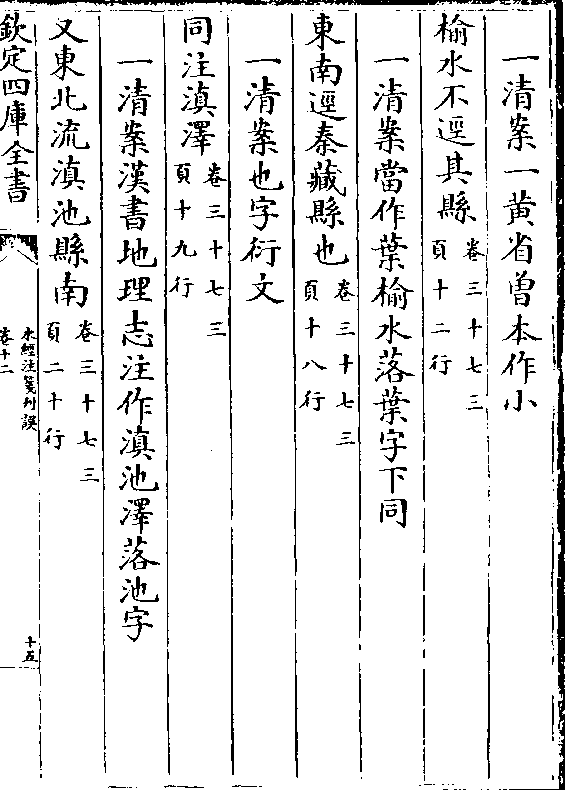 一清案一黄省曾本作小
榆水不逕其縣卷三十七三頁十二行
一清案當作葉榆水落葉字下同
東南逕秦藏縣也卷三十七三頁十八行
一清案也字衍文
同注滇澤卷三十七三頁十九行
一清案漢書地理志注作滇池澤落池字
又東北流滇池縣南卷三十七三頁二十行
欽定四庫全書
水經注箋刊誤
卷十二
十五